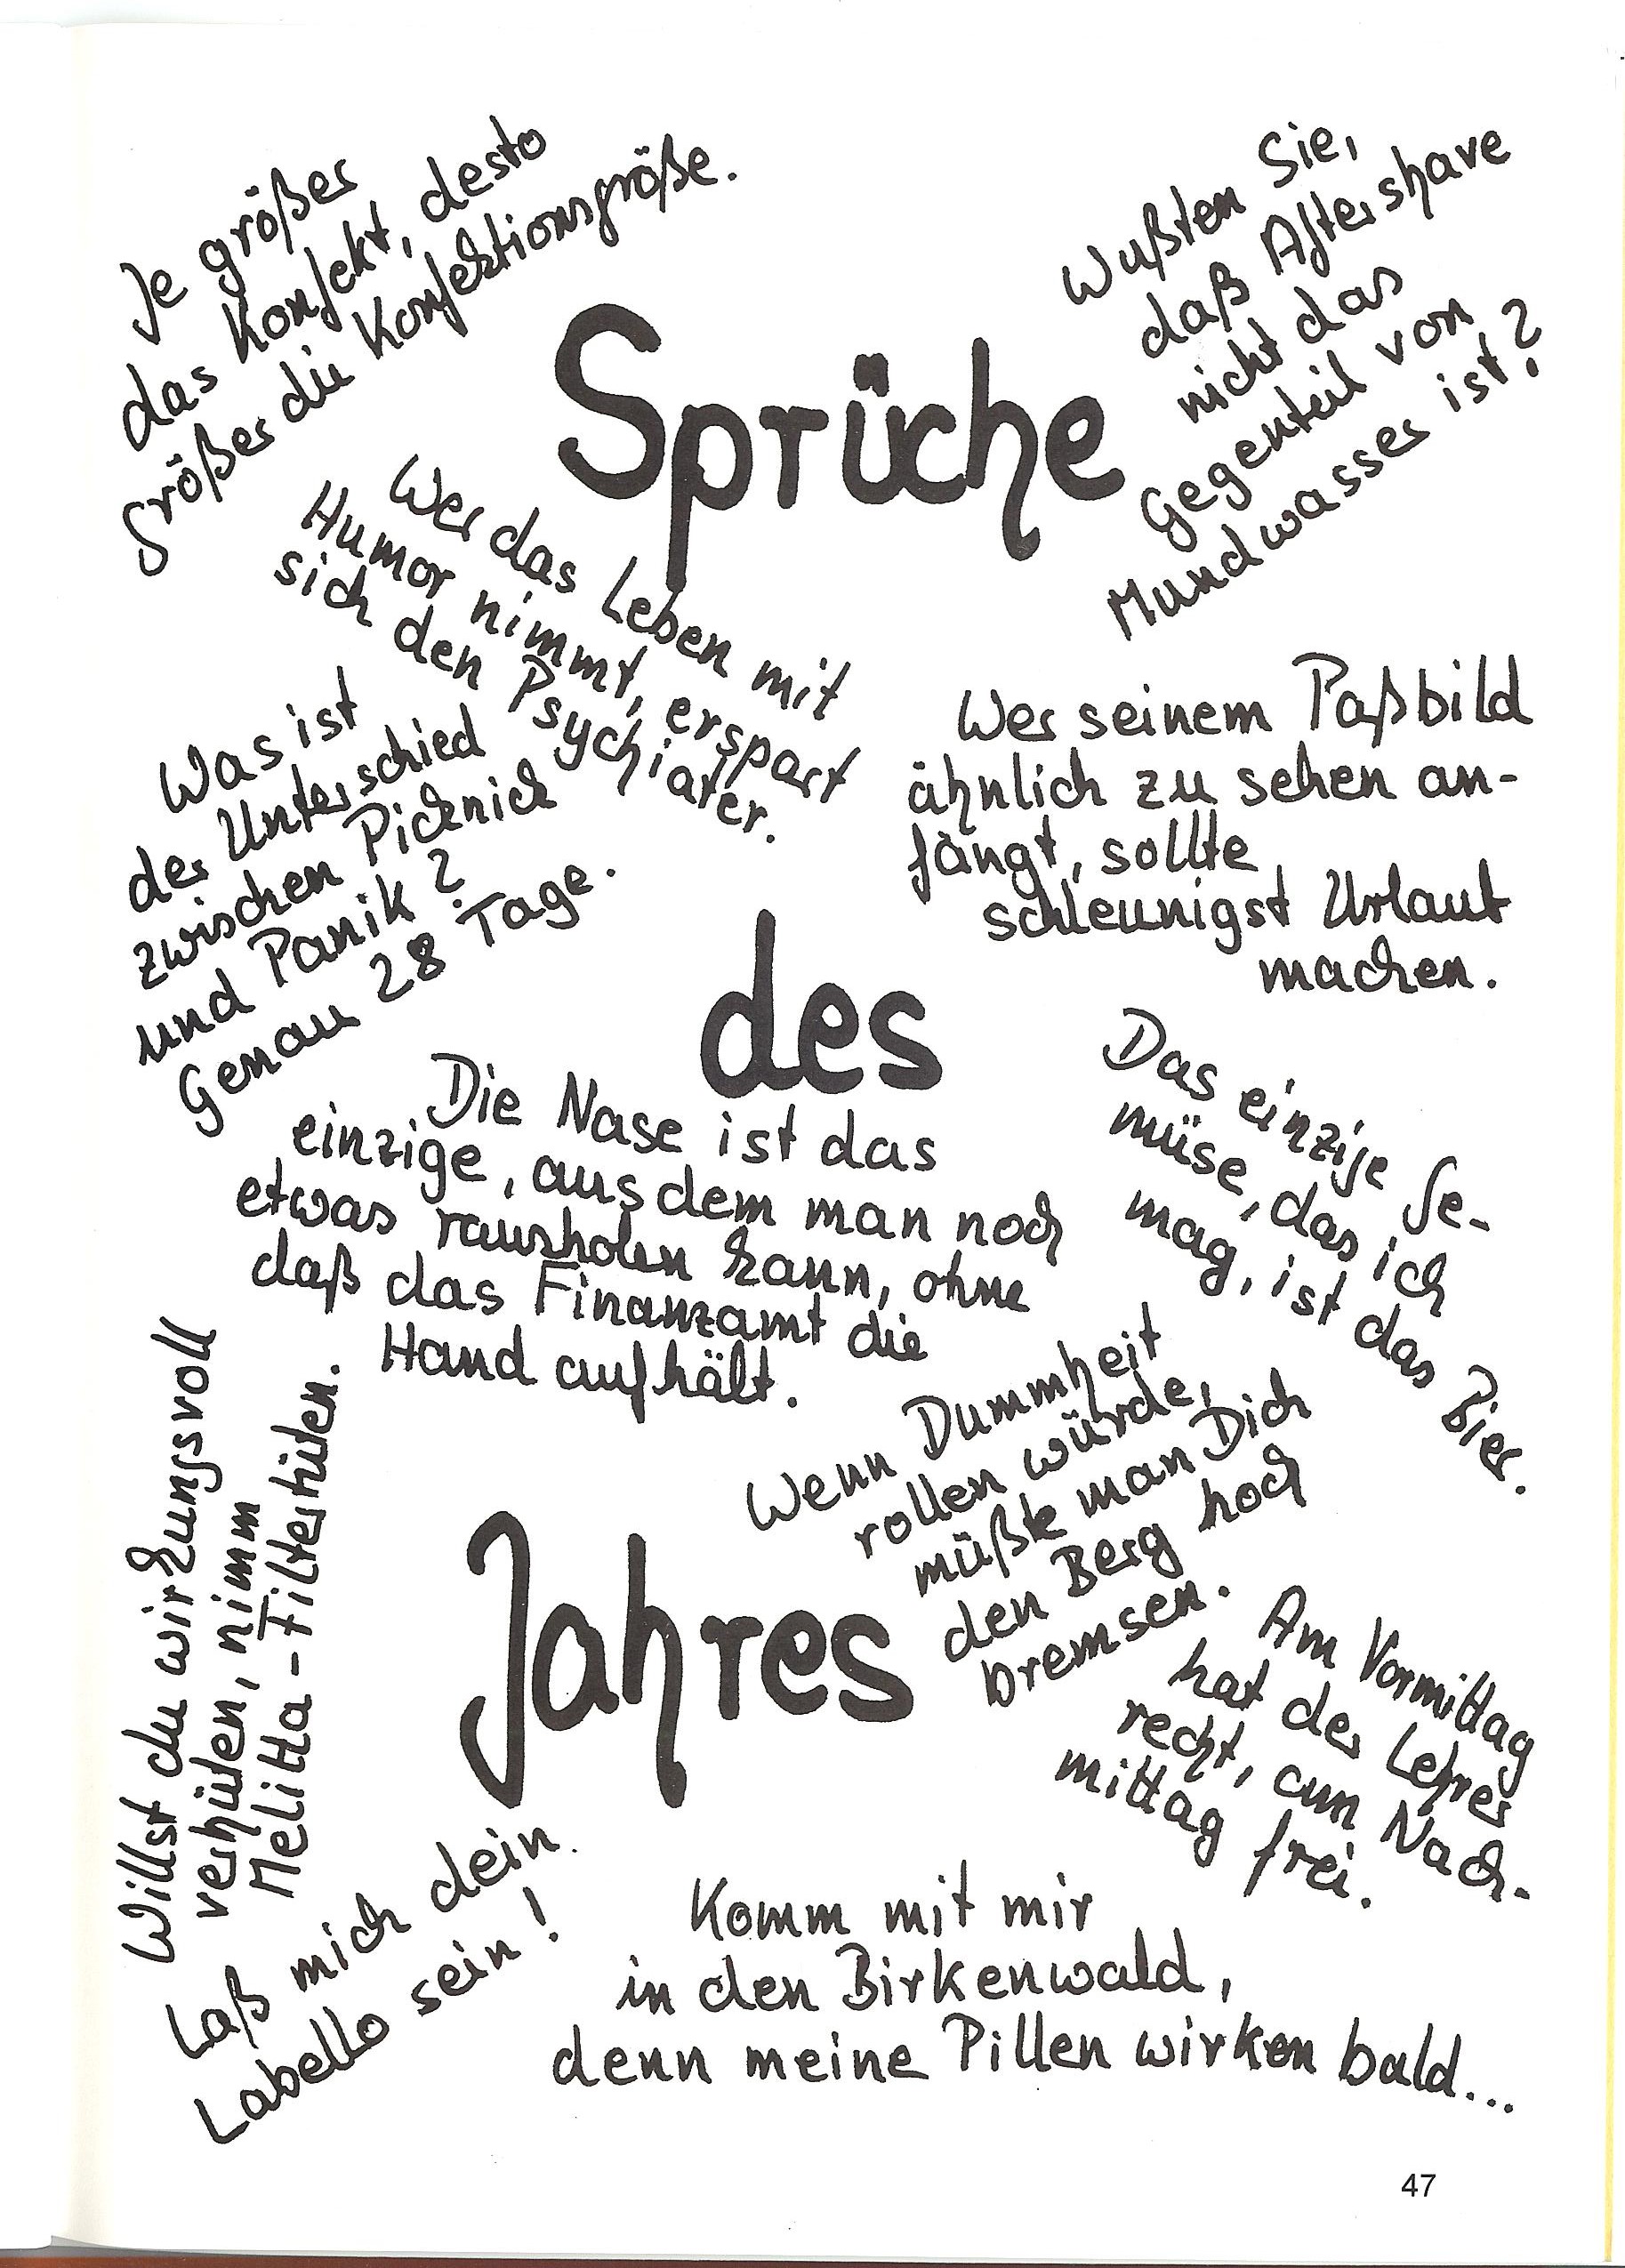 Je größer
das Konfekt, desto
größer die Konfektionsgröße.
Wußten Sie,
daß Aftershave
nicht das
Gegenteil von
Mundwasser ist?
Sprüche
Wer das Leben mit
Humor nimmt, erspart
sich den Psychiater.
Was ist
der Unterschied
zwischen Picknick
und Panik?
Genau 28 Tage.
Wer seinem Paßbild
ähnlich zu sehen an-
fängt, sollte
schleunigst Urlaub
machen.
des
Die Nase ist das
einzige, aus dem man noch
etwas rausholen kann, ohne
daß das Finanzamt die
Hand aufhält.
Das einzige Ge-
müse, das ich
mag, ist das Bier.
Wenn Dummheit
rollen würde,
müßte man Dich
den Berg hoch
bremsen.
Jahres
Willst du wirkungsvoll
verhüten, nimm
Melitta-Filtertüten.
Am Vormittag
hat der Lehrer
recht, am Nach-
mittag frei.
Laß mich dein
Labello sein!
Komm mit mir
in den Birkenwald,
denn meine Pillen wirken bald...
47